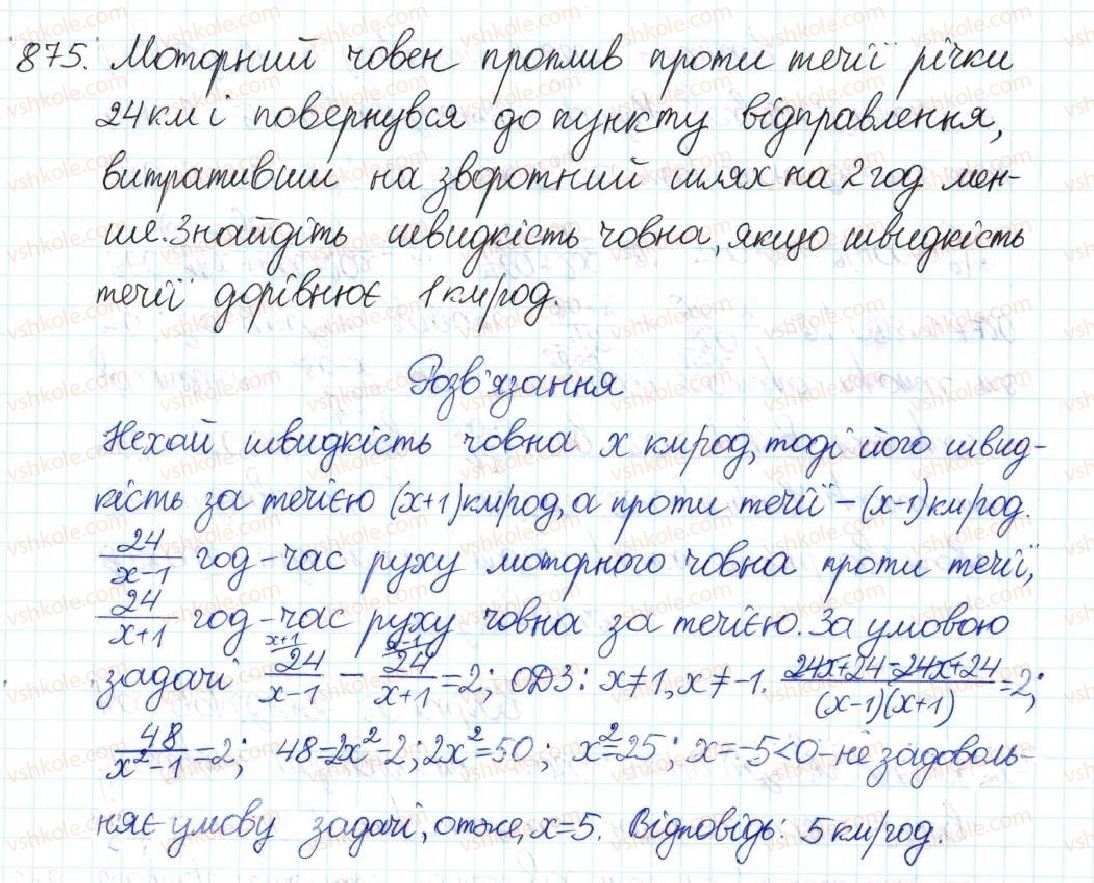 875. Моторний човен проплив проти течії річки
24 км і повернувся до пункту відправлення,
витративши на зворотний шлях на 2 год мен-
ше. Знайдіть швидкість човна, якщо швидкість
течії дорівнює 1 км/год.
Розв'язання
Нехай швидкість човна x км/год, тоді його швид-
кість за течією (x+1) км/год, а проти течії – (x-1) км/год.
24/(x-1) год – час руху моторного човна проти течії,
24/(x+1) год – час руху човна за течією. За умовою
задачі x+1 24/(x-1) - x-1 24/(x+1) = 2; ОДЗ: x≠1, x≠-1. (24x+24-24x+24)/((x-1)(x+1)) = 2;
48/(x²-1) = 2; 48=2x²-2; 2x²=50; x²=25; x=-5<0 – не задоволь-
няє умову задачі, отже, x=5. Відповідь: 5 км/год.